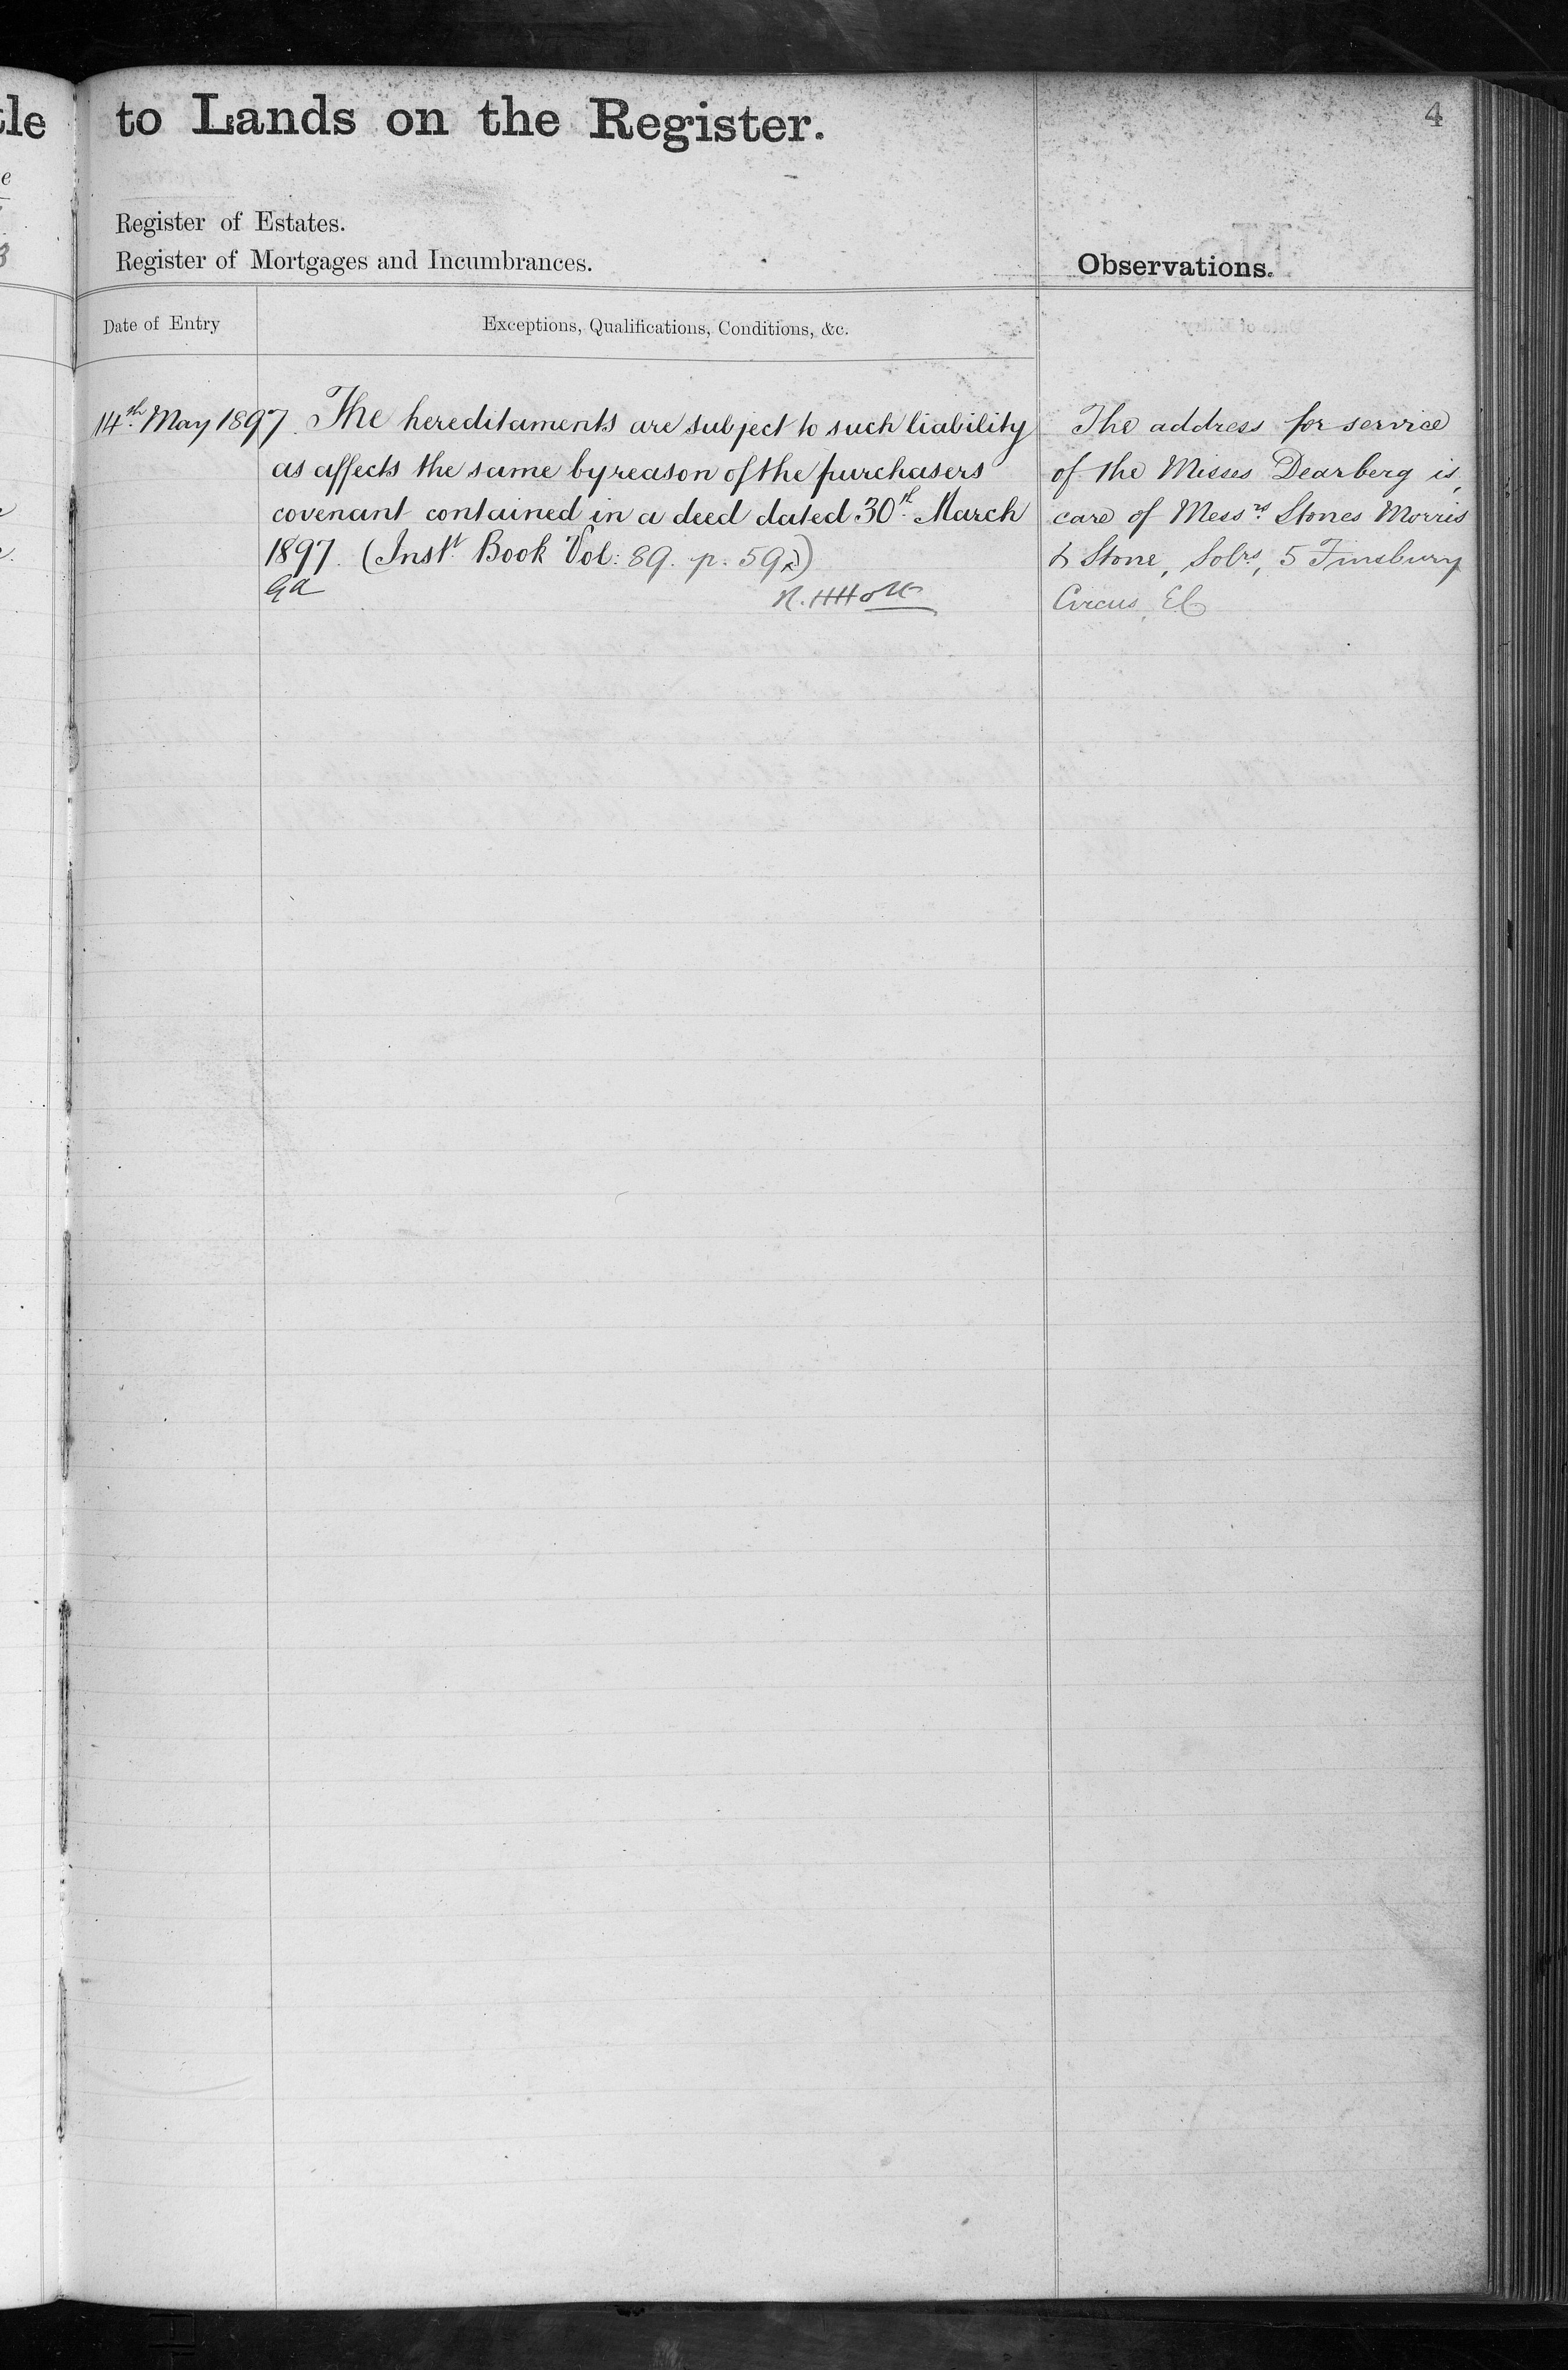 to Lands on the Register.
4
Register of Estates.
Register of Mortgages and Incumbrances.
Observations.
Date of Entry
Exceptions, Qualifications, Conditions, &c.
14th May 1897. The hereditaments are subject to such liability
as affects the same by reason of the purchasers
covenant contained in a deed dated 30th March
1897. (Instt Book Vol: 89. p. 59
The address for service
of the Misses Dearberg is,
care of Messrs Stones Morris
& Stone, Solrs, 5 Finsbury
Circus, EC